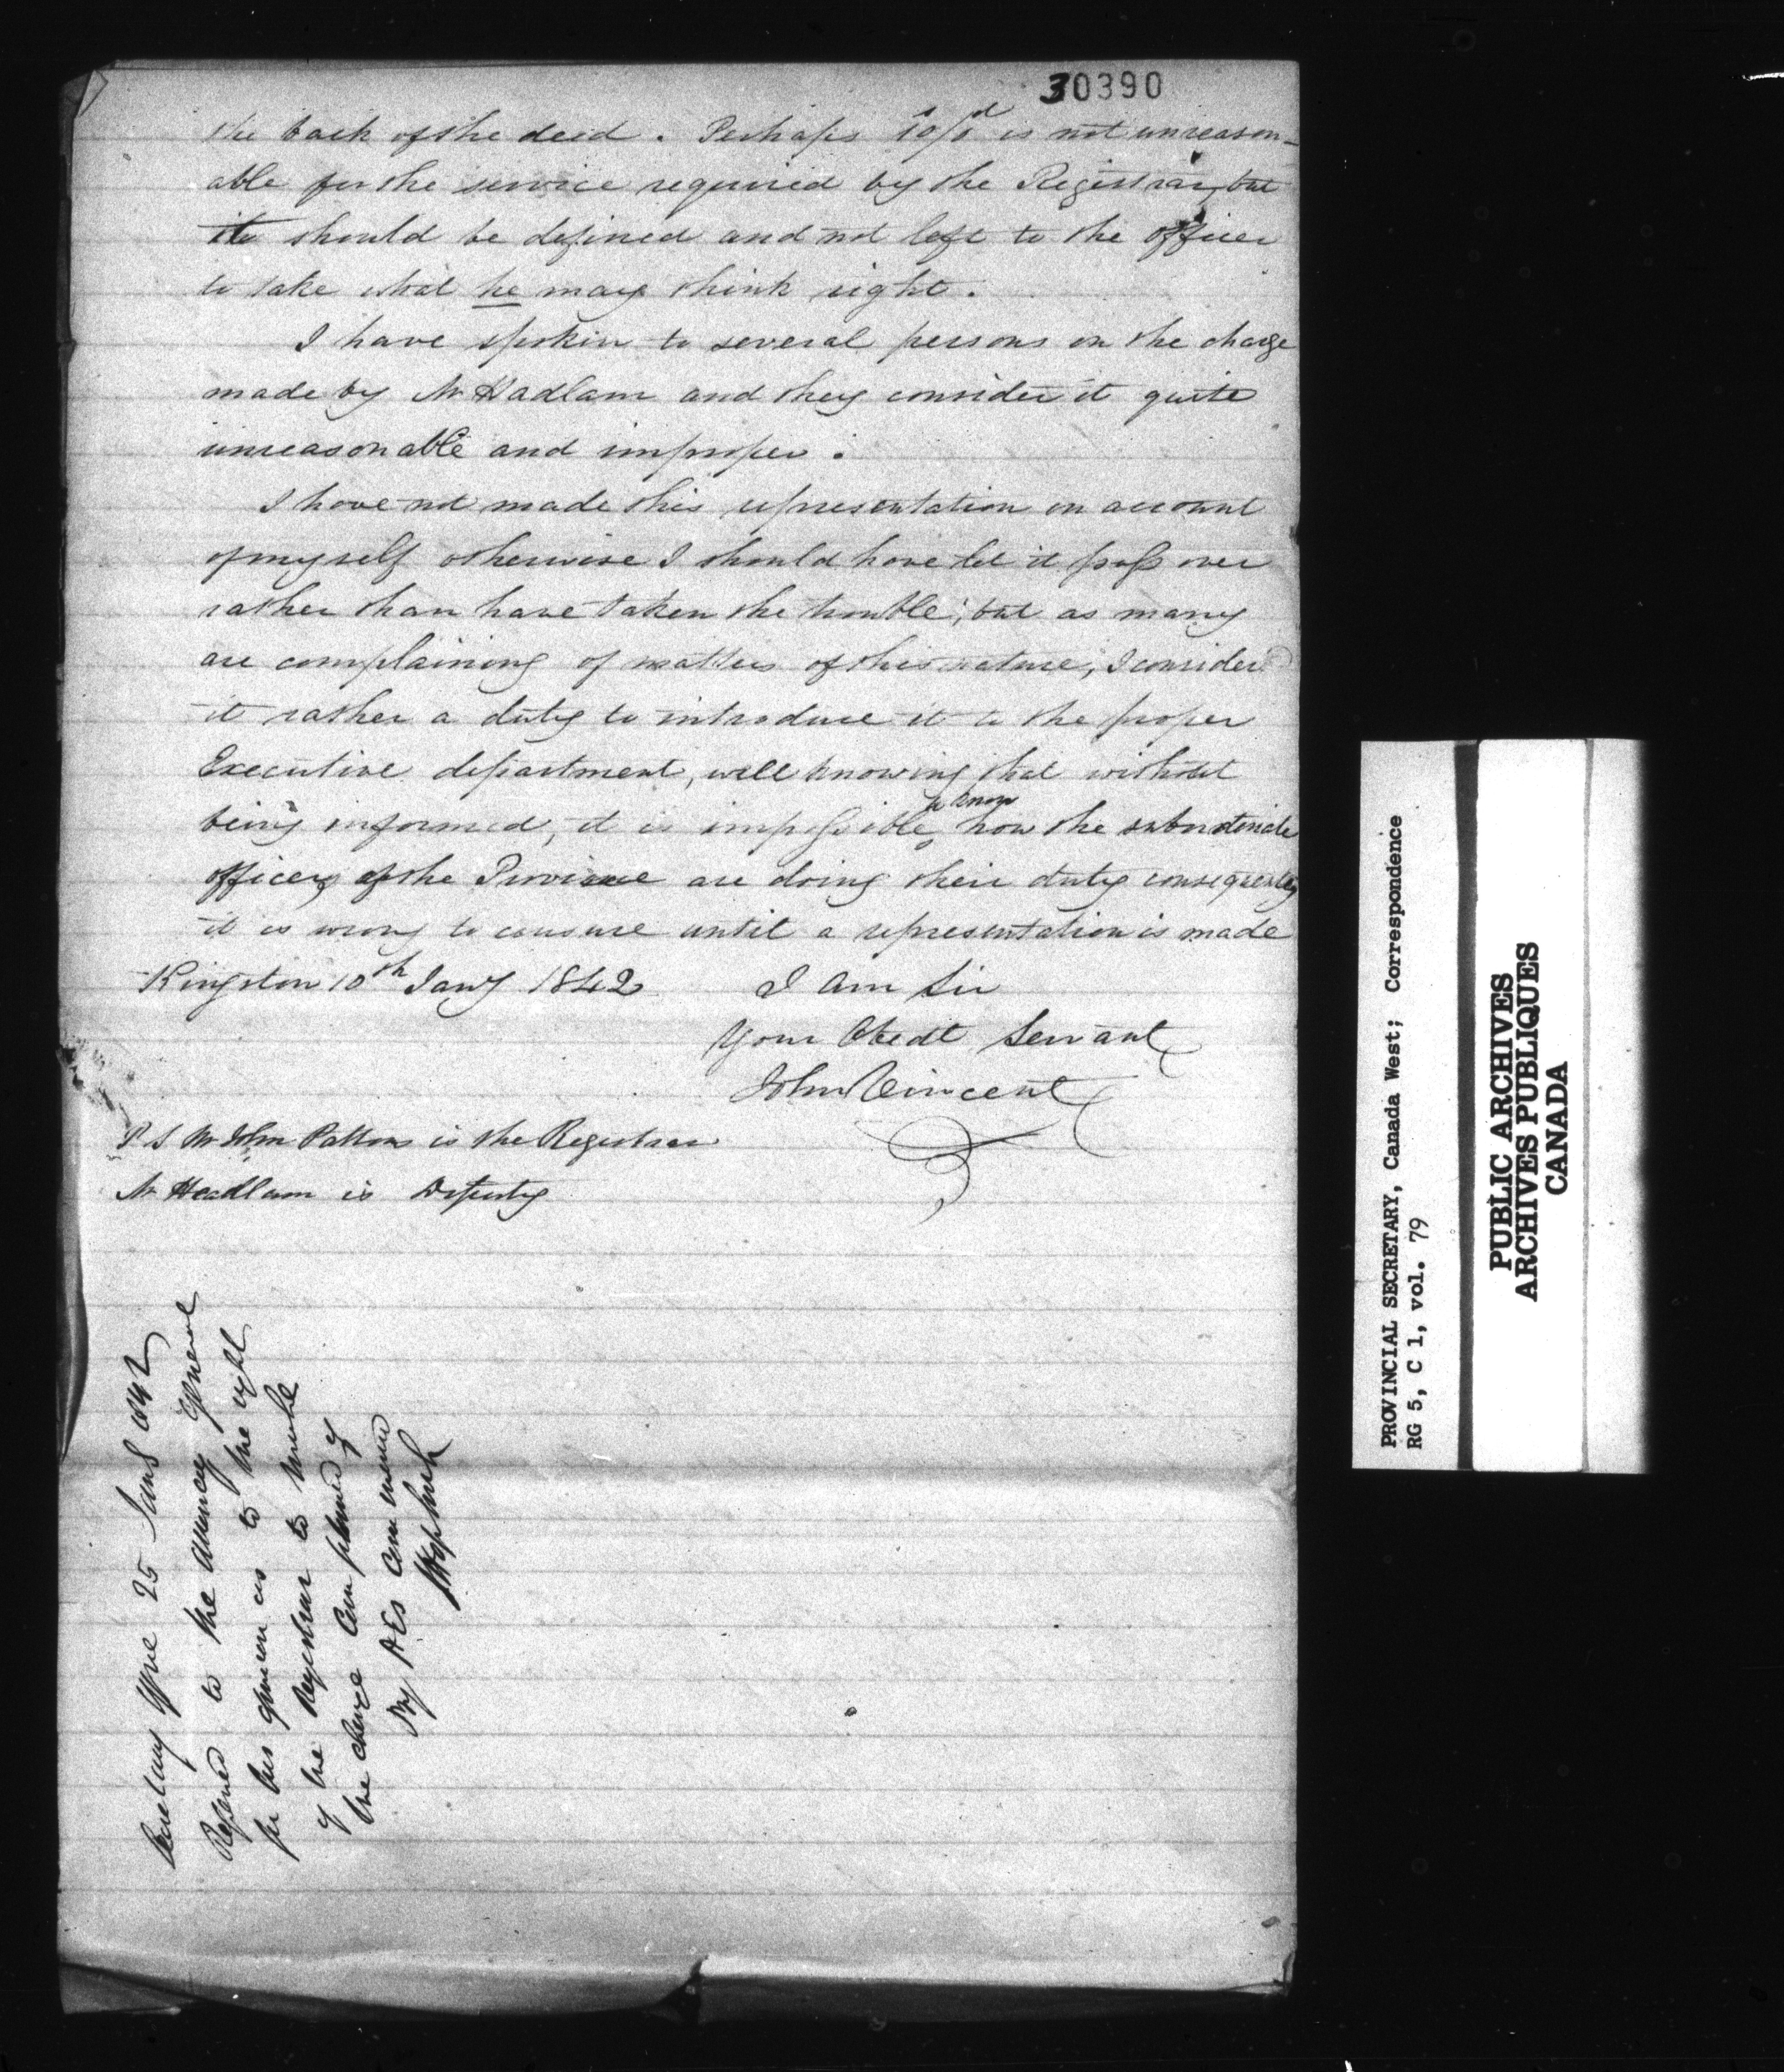 30390
the back of the deed. Perhaps 10/ is not unreason-
able for the service required by the Registrar, but
it should be defined and not left to the officer
to take what he may think right.
I have spokin to several persons on the charge
made by Mr Hadlam and they consider it quite
unreasonable and improper.
I have not made this representation on account
of myself otherwise I should have let it pass over
rather than have taken the trouble; but as many
are complaining of matters of this nature, I consider
it rather a duty to introduce it to the proper
Executive department, well knowing that without
being informed, it is impossible to know how the subordinate
officers of the Province are doing their duty consequently
it is wrong to censure until a representation is made
Kingston 10th Jany 1842 I am Sir
Your Obedt Servant
John Vincent
P S Mr John Patton is the Registrar
Mr Headlam is Deputy
Secretary Office 25 Jany 1842
Referred to the Attorney General
for his opinion as to the right
of the Registrar to make
the charge complained of
By HEs Command
PROVINCIAL SECRETARY, Canada West; Correspondence
RG 5, C 1, vol. 79
PUBLIC ARCHIVES
ARCHIVES PUBLIQUES
CANADA